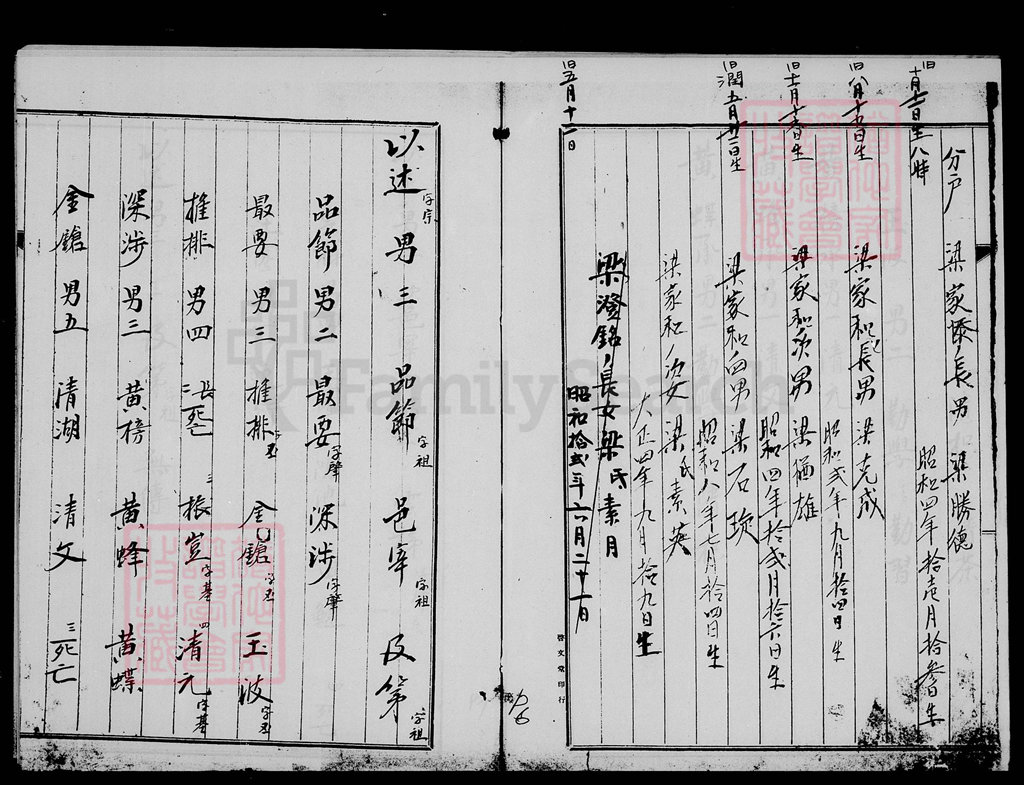 分户 梁家添ノ長男 梁勝德
旧十月十三日生八時 昭和四年拾壱月拾參日生
梁家和ノ長男 梁克成
旧八月十五日生 昭和弍年九月拾四日生
梁家和次男 梁猶雄
旧十一月十六日生 昭和四年拾弍月拾六日生
梁家和四男 梁石頂
旧閏五月廿二日生 昭和八年七月拾四日生
梁家和ノ次女 梁氏素英
大正四年九月拾九日生
梁澄銘ノ長女梁氏素月
旧五月十二日 昭和拾弍年六月二十一日
啓文堂印行
96
以述字宗 男三 品節字祖 邑宰字祖 及第字祖
品節 男二 最要字肇 深涉字肇
最要 男三 推排字丕 金鎗字丕 玉波字丕
推排 男四 長二死亡 三振豈字基 四清元字基
深涉 男三 黃榜 黃蜂 黃蝶
金鎗 男五 清湖 清文 三死亡
FamilySearch